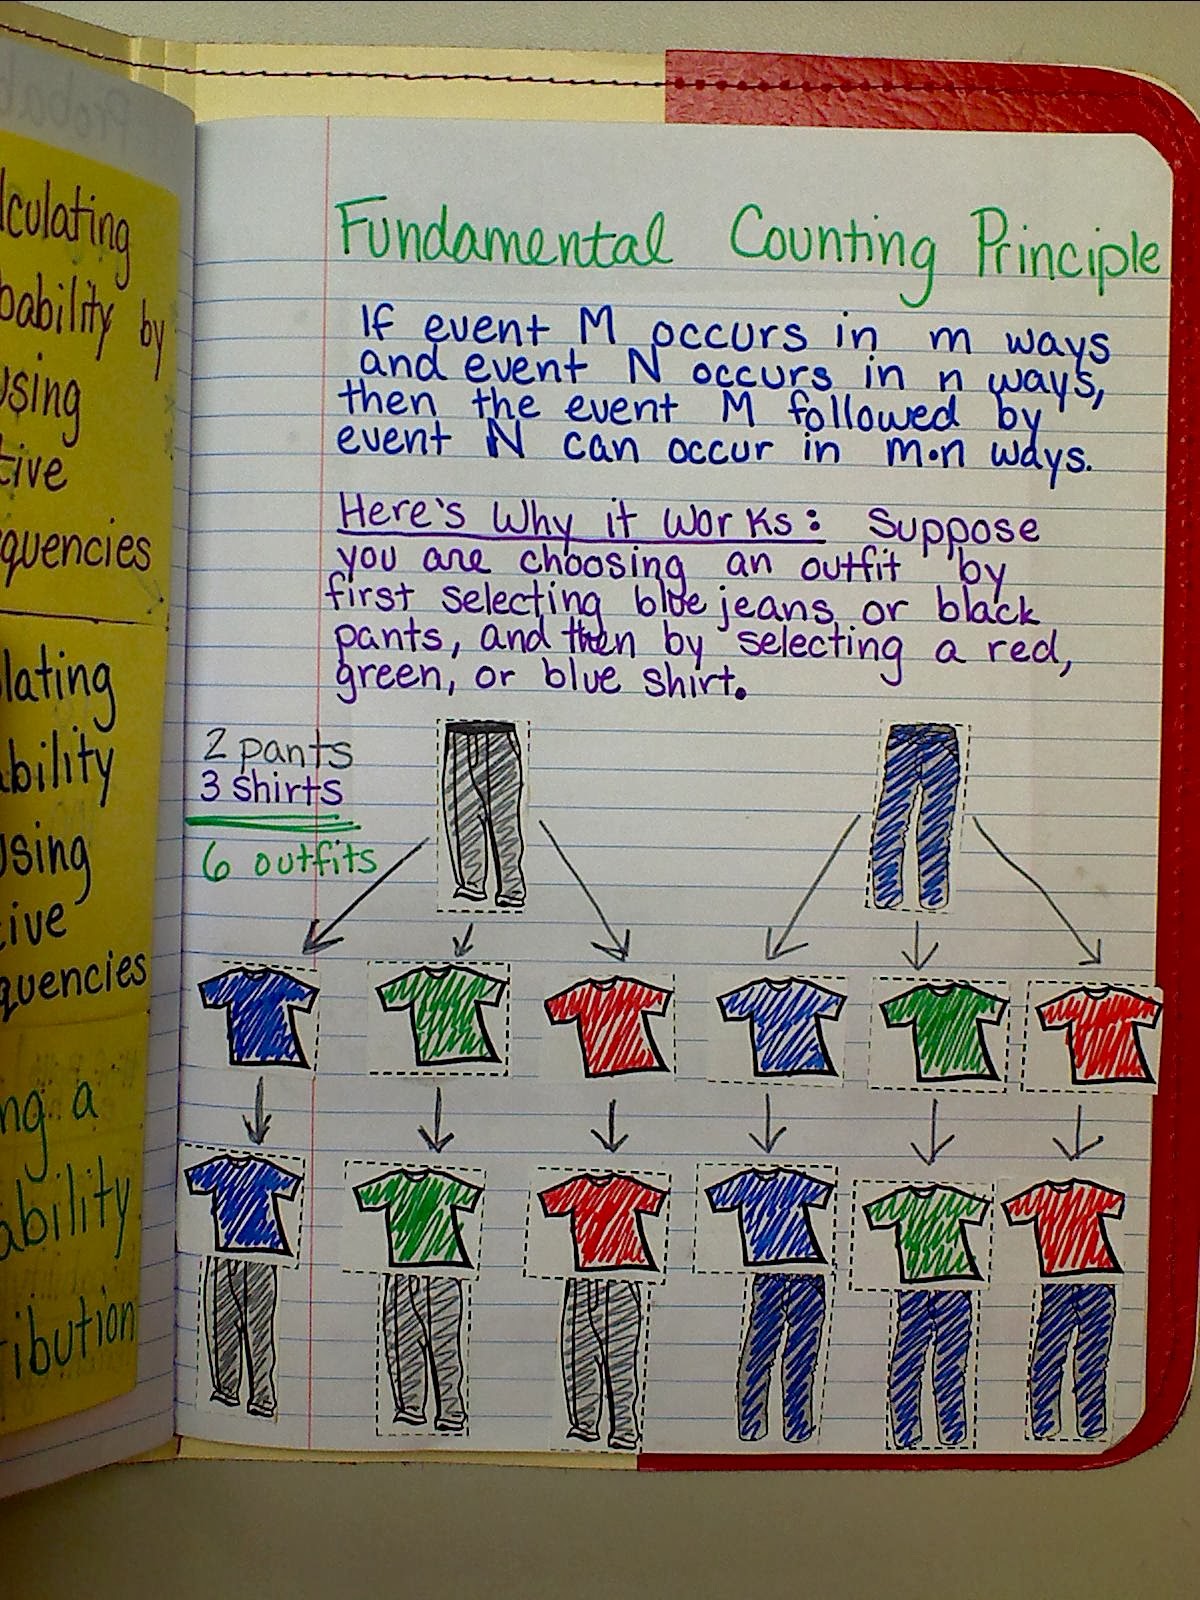 by
using
quencies
ability
using
quencies
a
ability
Fundamental Counting Principle
If event M occurs in m ways
and event N occurs in n ways,
then the event M followed by
event N can occur in m·n ways.
Here's Why it Works: Suppose
you are choosing an outfit by
first selecting blue jeans or black
pants, and then by selecting a red,
green, or blue shirt.
2 pants
3 shirts
6 outfits